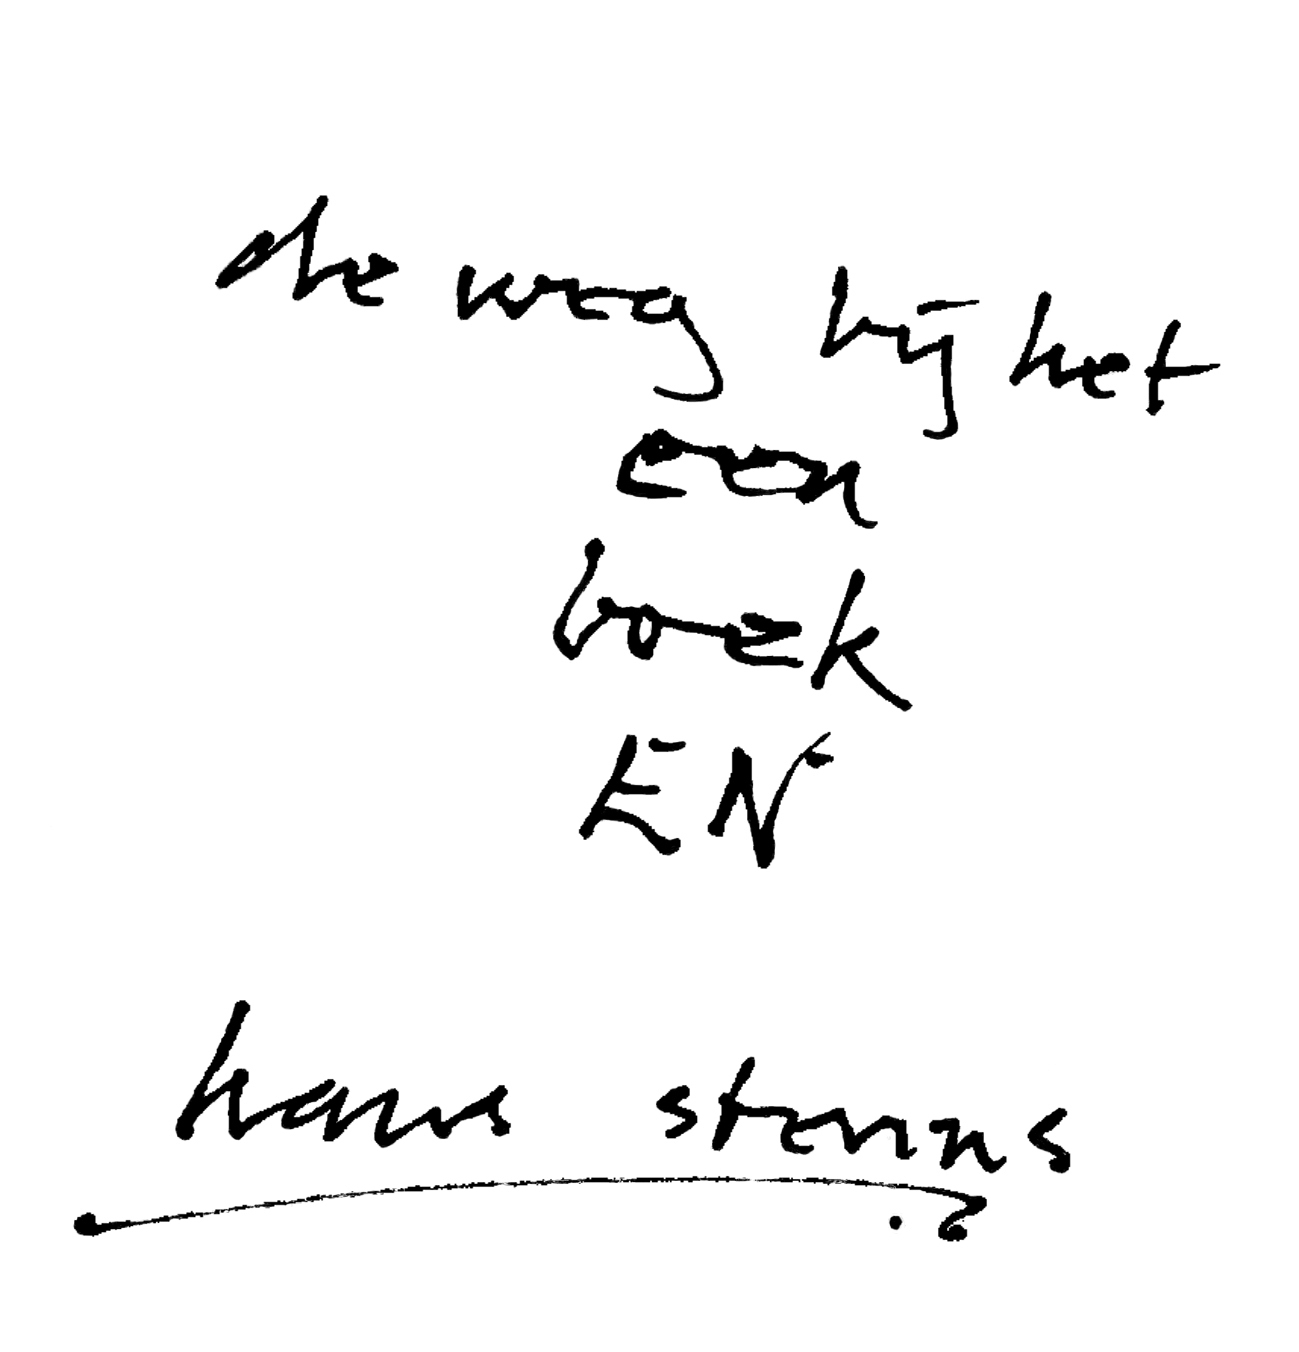 de weg bij het
een
boek
EN
hans stevens